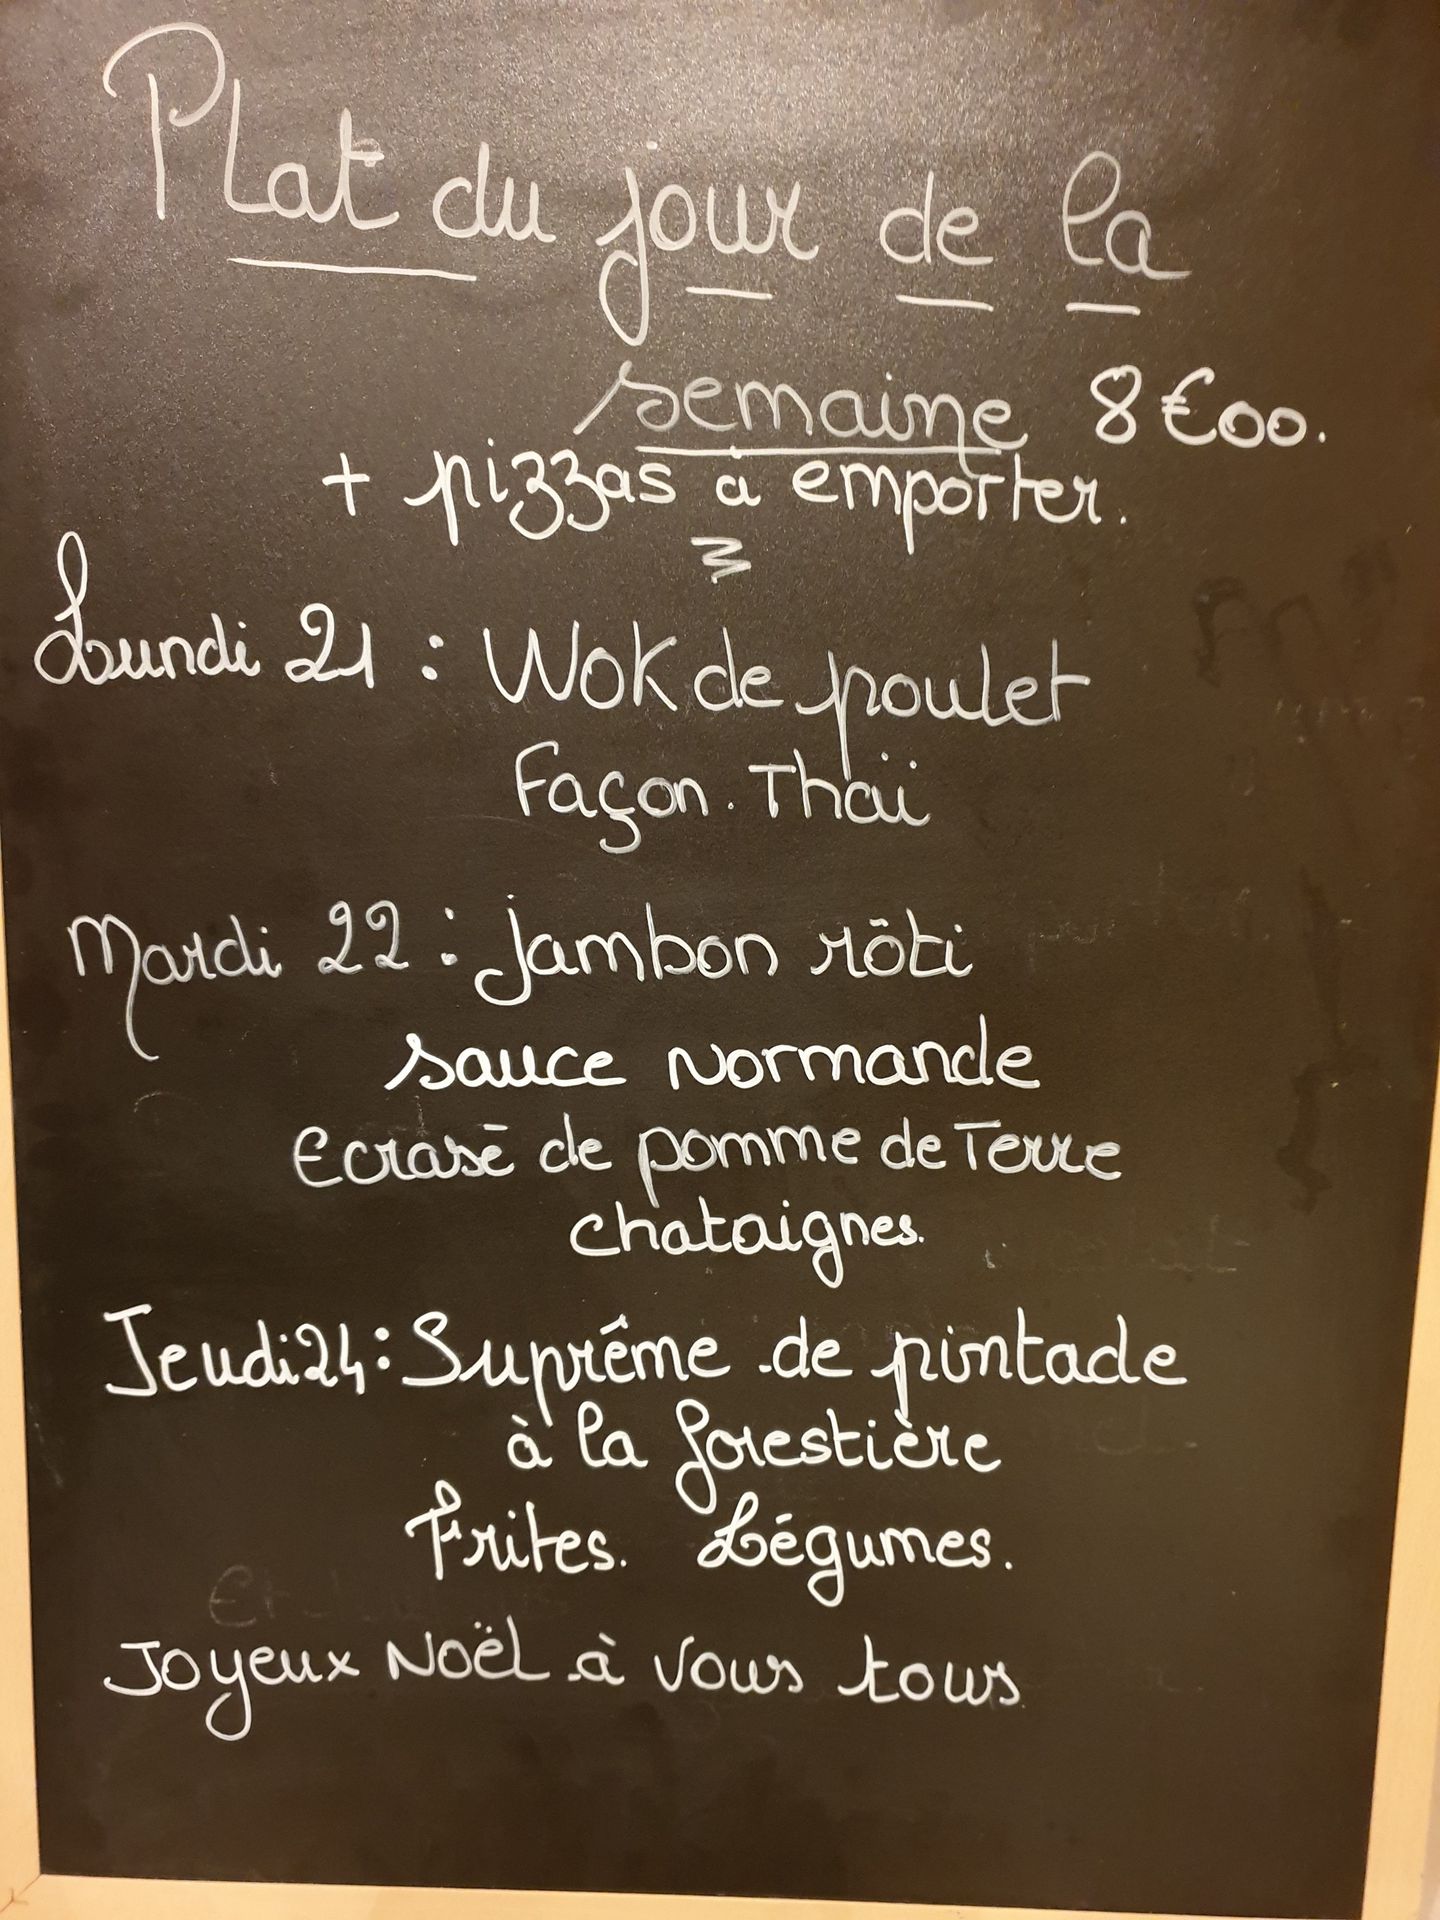 Plat du jour de la
semaine 8€00.
+ pizzas à emporter.
Lundi 21 : Wok de poulet
Façon. Thaï
Mardi 22 : jambon rôti
sauce Normande
Ecrasé de pomme de Terre
chataignes.
Jeudi 24 : Suprême de pintade
à la forestière
Frites. Légumes.
Joyeux Noël à vous tous